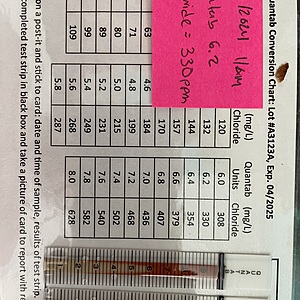 uantab Conversion Chart: Lot #A3123A, Exp. 04/2025
/2024 11am
tab 6.2
ride = 330ppm
Chloride Quantab Chloride
(mg/L) Units (mg/L)
120 6.0 308
132 6.2 330
144 6.4 354
157 6.6 379
170 6.8 407
63 4.6 184 7.0 436
71 4.8 199 7.2 468
80 5.0 215 7.4 502
89 5.2 231 7.6 540
99 5.4 249 7.8 582
109 5.6 268 8.0 628
5.8 287
on a post-it and stick to card: date and time of sample, results of test strip
completed test strip in black box and take a picture of card to report with re
QUANTAB